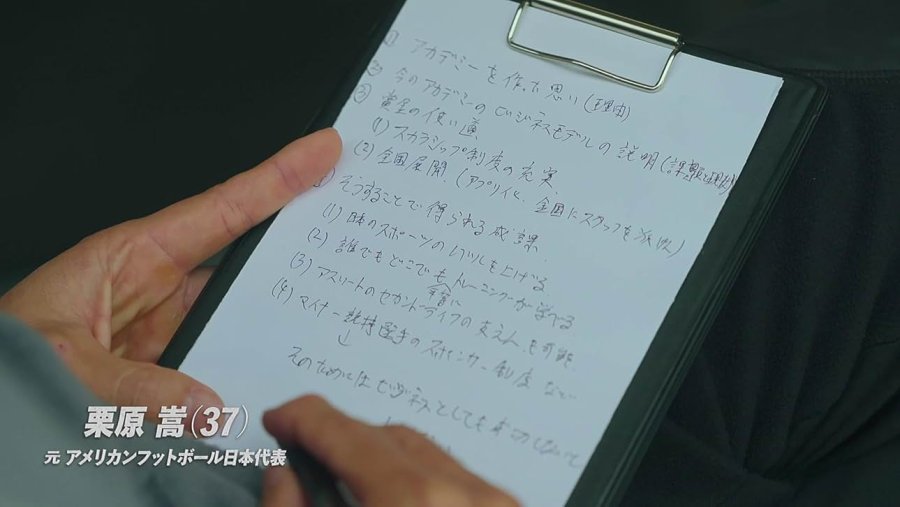 ① アカデミーを作った思い(理由)
② 今のアカデミーのビジネスモデルの説明(課題と現状)
③ 賞金の使い道
(1) スカラシップ制度の充実
(2) 全国展開。(アプリ化、全国にスタッフを派遣)
そうすることで得られる成課
(1) 日本のスポーツのレベルを上げる
(2) 誰でもどこでも平等にトレーニングが学べる
(3) アスリートのセカンドライフの支えんも可能
(4) マイナー競技選手のスポンサー制度 など
↓
そのためにはビジネスとしても
栗原 嵩(37)
元 アメリカンフットボール日本代表